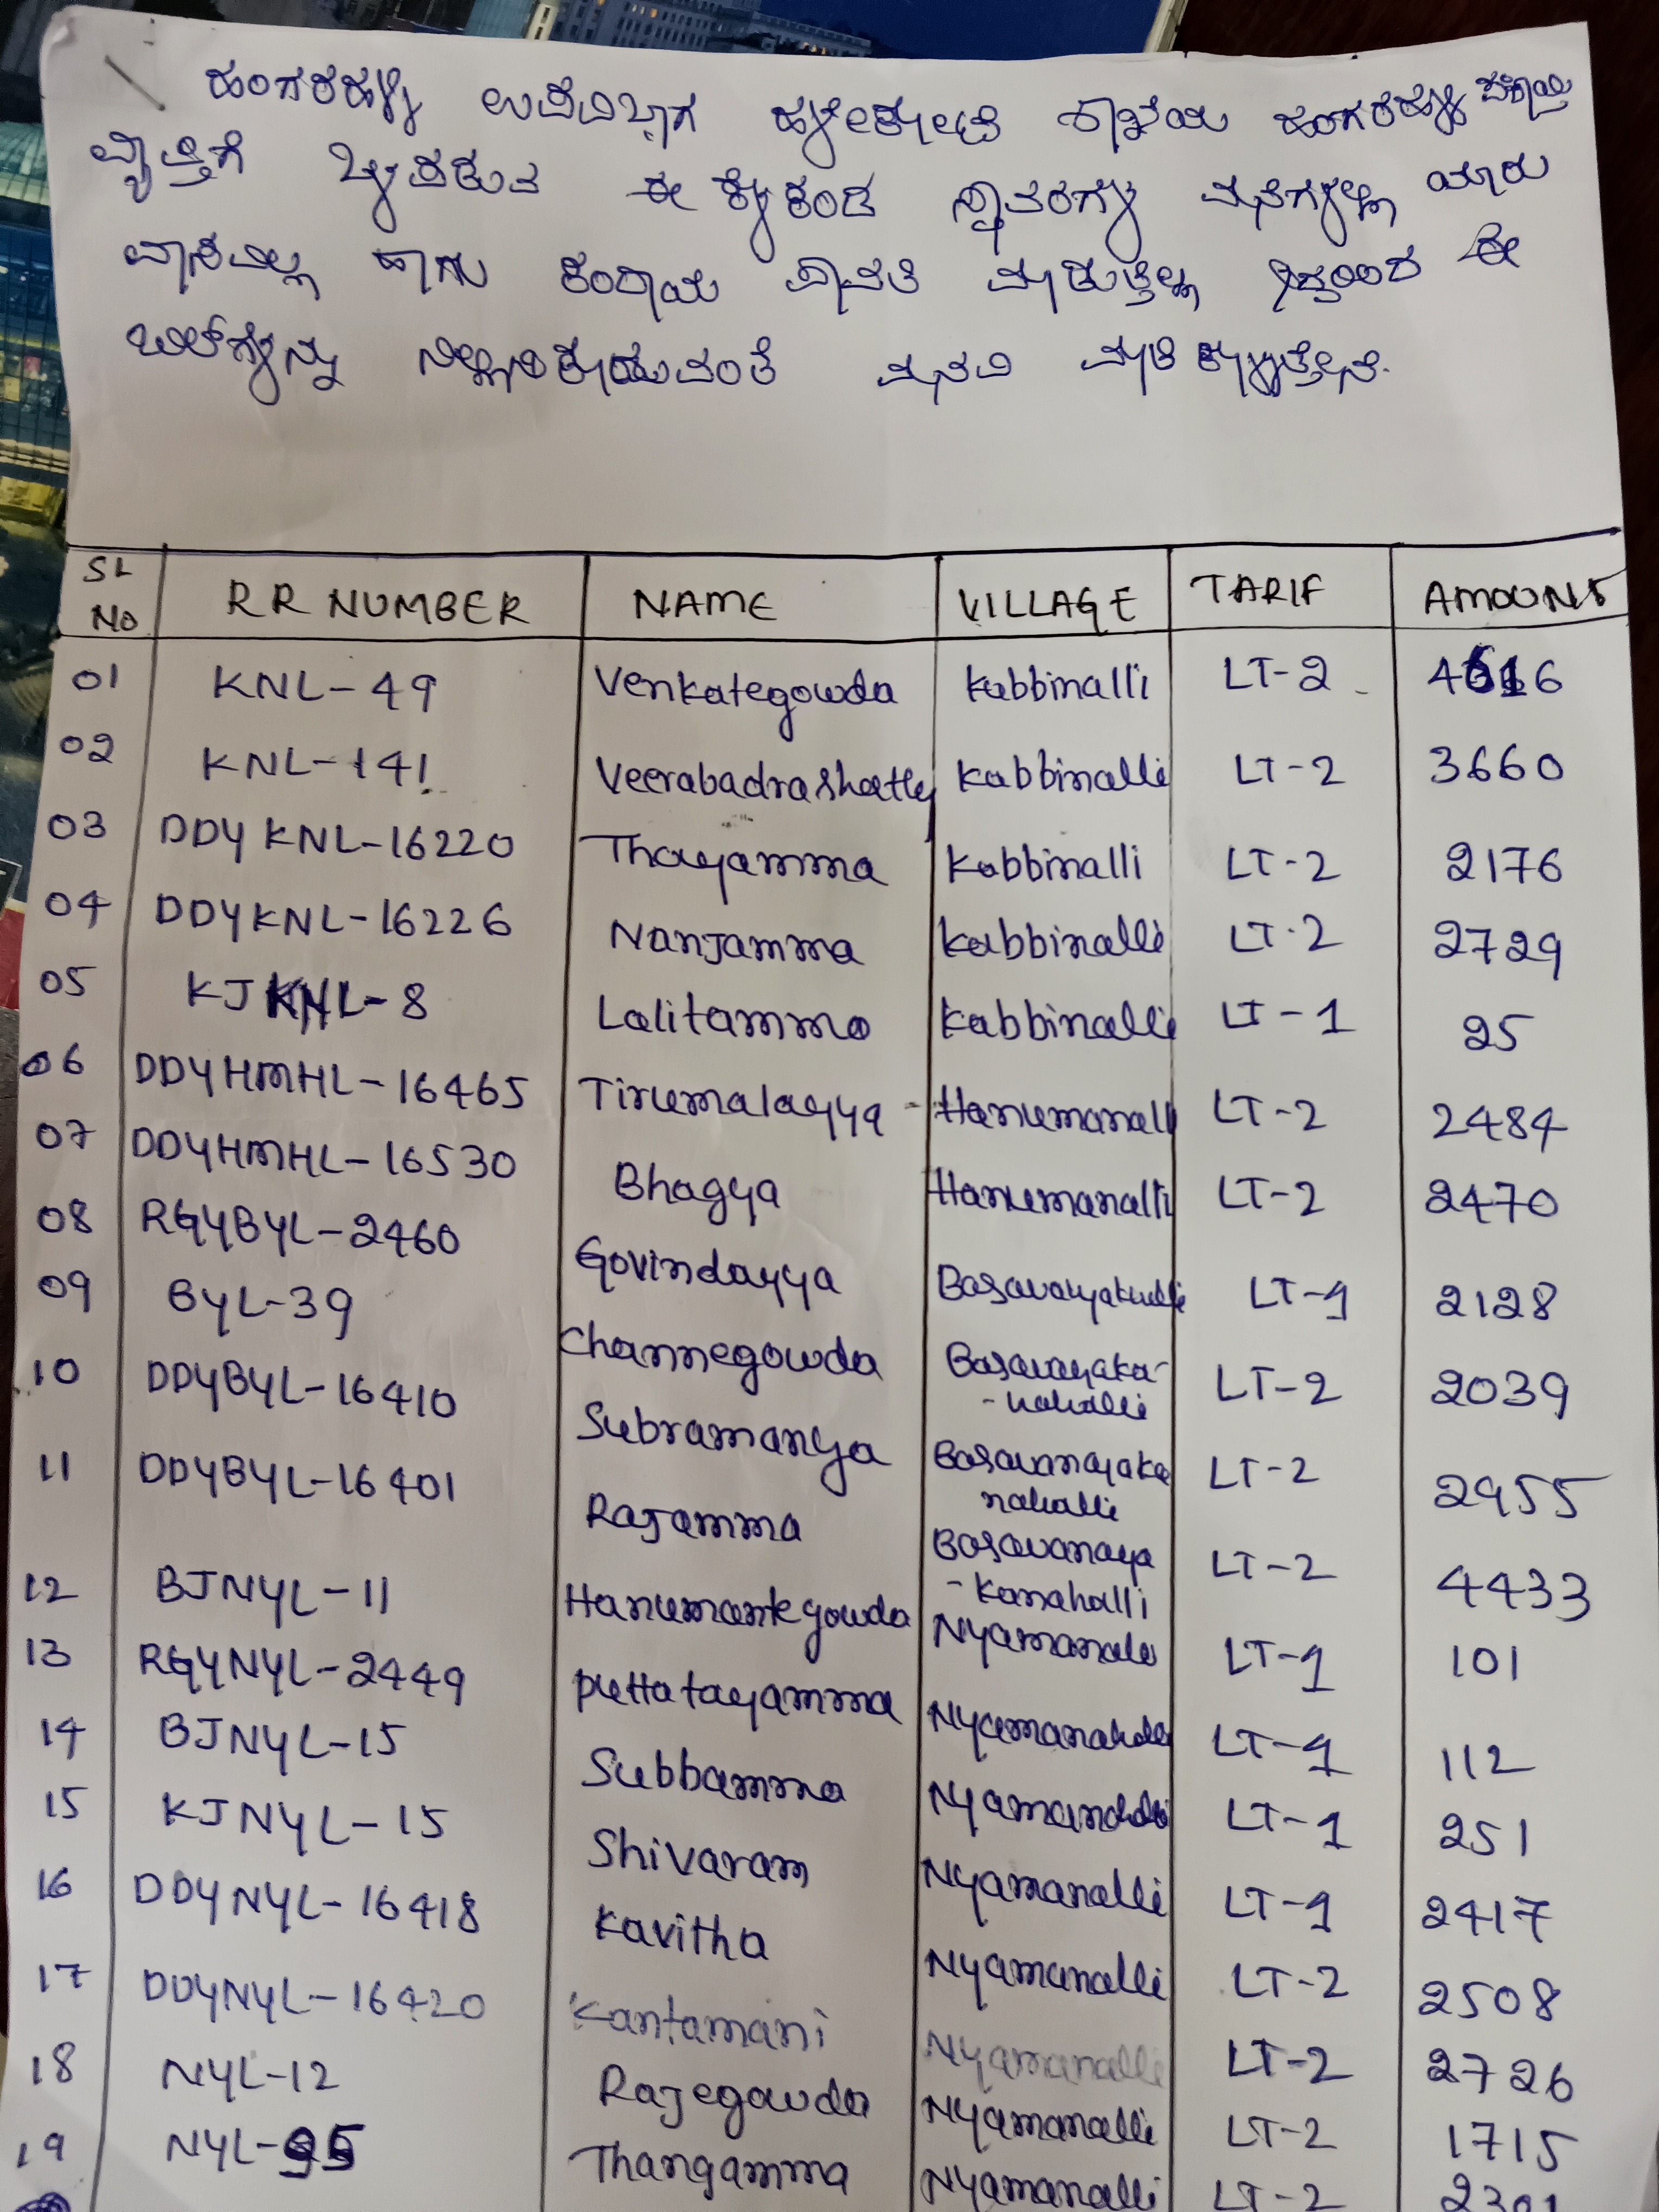 ಹಂಗರಹಳ್ಳಿ ಉಪವಿಭಾಗ ಹಳೇಕೋಟೆ ಶಾಖೆಯ ಹಂಗರಹಳ್ಳಿ
ವ್ಯಾಪ್ತಿಗೆ ಒಳಪಡುವ ಈ ಕೆಳಕಂಡ ಸ್ಥಾವರಗಳ ಮನೆಗಳಲ್ಲಿ ಯಾರು
ವಾಸವಿಲ್ಲ ಹಾಗು ಕಂದಾಯ ಪಾವತಿ ಮಾಡುತ್ತಿಲ್ಲ ಆದ್ದರಿಂದ ಈ
ಬಿಲ್‌ಗಳನ್ನು ನಿಲ್ಲಿಸಿಕೊಡುವಂತೆ ಮನವಿ ಮಾಡಿಕೊಳ್ಳುತ್ತೇನೆ.
SL No RR NUMBER NAME VILLAGE TARIF AMOUNT
01 KNL-49 Venkategowda Kabbinalli LT-2 4616
02 KNL-141 Veerabadrashatty Kabbinalli LT-2 3660
03 DDYKNL-16220 Thayamma Kabbinalli LT-2 2176
04 DDYKNL-16226 Nanjamma Kabbinalli LT-2 2729
05 KJKNL-8 Lalitamma Kabbinalli LT-1 25
06 DDYHMHL-16465 Tirumalayya Hanumanall LT-2 2484
07 DDYHMHL-16530 Bhagya Hanumanalli LT-2 2470
08 RGYBYL-2460 Govindayya LT-1 2128
09 BYL-39 Channegowda Basavayaka- LT-2 2039
-nahalli
10 DDYBYL-16410 Subramanya Basavanayaka LT-2 2955
nahalli
11 DDYBYL-16401 Rajamma Basavanaya LT-2 4433
-kanahalli
12 BJNYL-11 Hanumantegowda Nyamanale LT-1 101
13 RGYNYL-2449 Puttatayamma LT-1 112
14 BJNYL-15 Subbamma LT-1 251
15 KJNYL-15 Shivaram Nyamanalli LT-1 2417
16 DDYNYL-16418 Kavitha Nyamanalli LT-2 2508
17 DDYNYL-16420 Kantamani Nyamanalli LT-2 2726
18 NYL-12 Rajegowda Nyamanalli LT-2 1715
19 NYL-95 Thangamma Nyamanalli LT-2